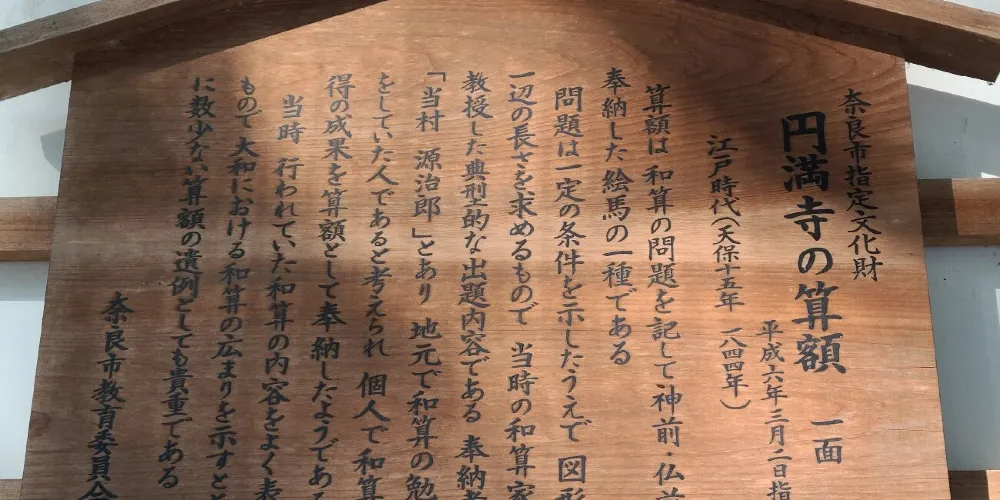 奈良市指定文化財
円満寺の算額 一面
平成六年三月二日指
江戸時代(天保十五年 一八四四年)
算額は 和算の問題を記して神前・仏前
奉納した絵馬の一種である
問題は一定の条件を示したうえで 図形
一辺の長さを求めるもので 当時の和算家
教授した典型的な出題内容である 奉納者
「当村 源治郎」とあり 地元で和算の勉
をしていた人であると考えられ 個人で和算
得の成果を算額として奉納したようであ
当時 行われていた和算の内容をよく表
もので 大和における和算の広まりを示すと
に数少ない算額の遺例としても貴重である
奈良市教育委員会